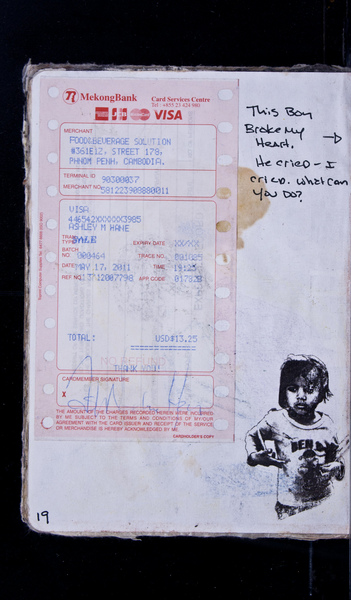 MekongBank
Card Services Centre
VISA
MERCHANT
FOOD&BEVERAGE SOLUTION
#361E12, STREET 178,
PHNOM PENH, CAMBODIA.
TERMINAL ID 90300037
MERCHANT NO. 581223908880011
VISA
446542XXXXXX3985
ASHLEY M HANE
TRAN TYPE SALE
EXPIRY DATE XX/XX
BATCH NO. 000464
TRACE NO.
DATE MAY 17, 2011
TIME
REF NO.
APP. CODE
TOTAL: USD$13.25
NO REFUND
THANK YOU!
CARDMEMBER SIGNATURE
X
THE AMOUNT OF THE CHARGES RECORDED HEREIN WERE INCURRED
BY ME SUBJECT TO THE TERMS AND CONDITIONS OF MY/OUR
AGREEMENT WITH THE CARD ISSUER AND RECEIPT OF THE SERVICE
OR MERCHANDISE IS HEREBY ACKNOWLEDGED BY ME.
CARDHOLDER'S COPY
This Boy
Broke my
Heart.
He cried – I
cried. What can
You do?
BEN
19